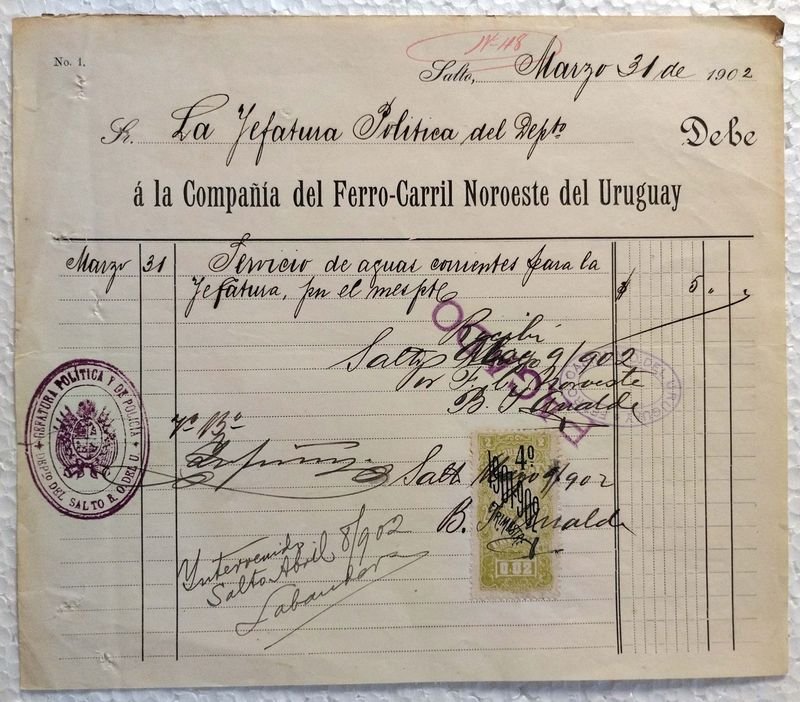 No. 1.
Nº 48
Salto, Marzo 31 de 1902
Sr. La Jefatura Politica del Depto Debe
á la Compañía del Ferro-Carril Noroeste del Uruguay
Marzo 31 Servicio de aguas corrientes para la
Jefatura, pn el mes pte $ 5 " "
Recibí
Salto Mayo 9/902
PAGADO
Por F. C. Noroeste
DEL URUGUAY
B.
JEFATURA POLITICA Y DE POLICIA
DEPto DEL SALTO R. O. DEL U.
Vº Bº
2 2
4º
Salto Mayo 9/902
B.
Intervenido
Salto Abril 8/902
0.02